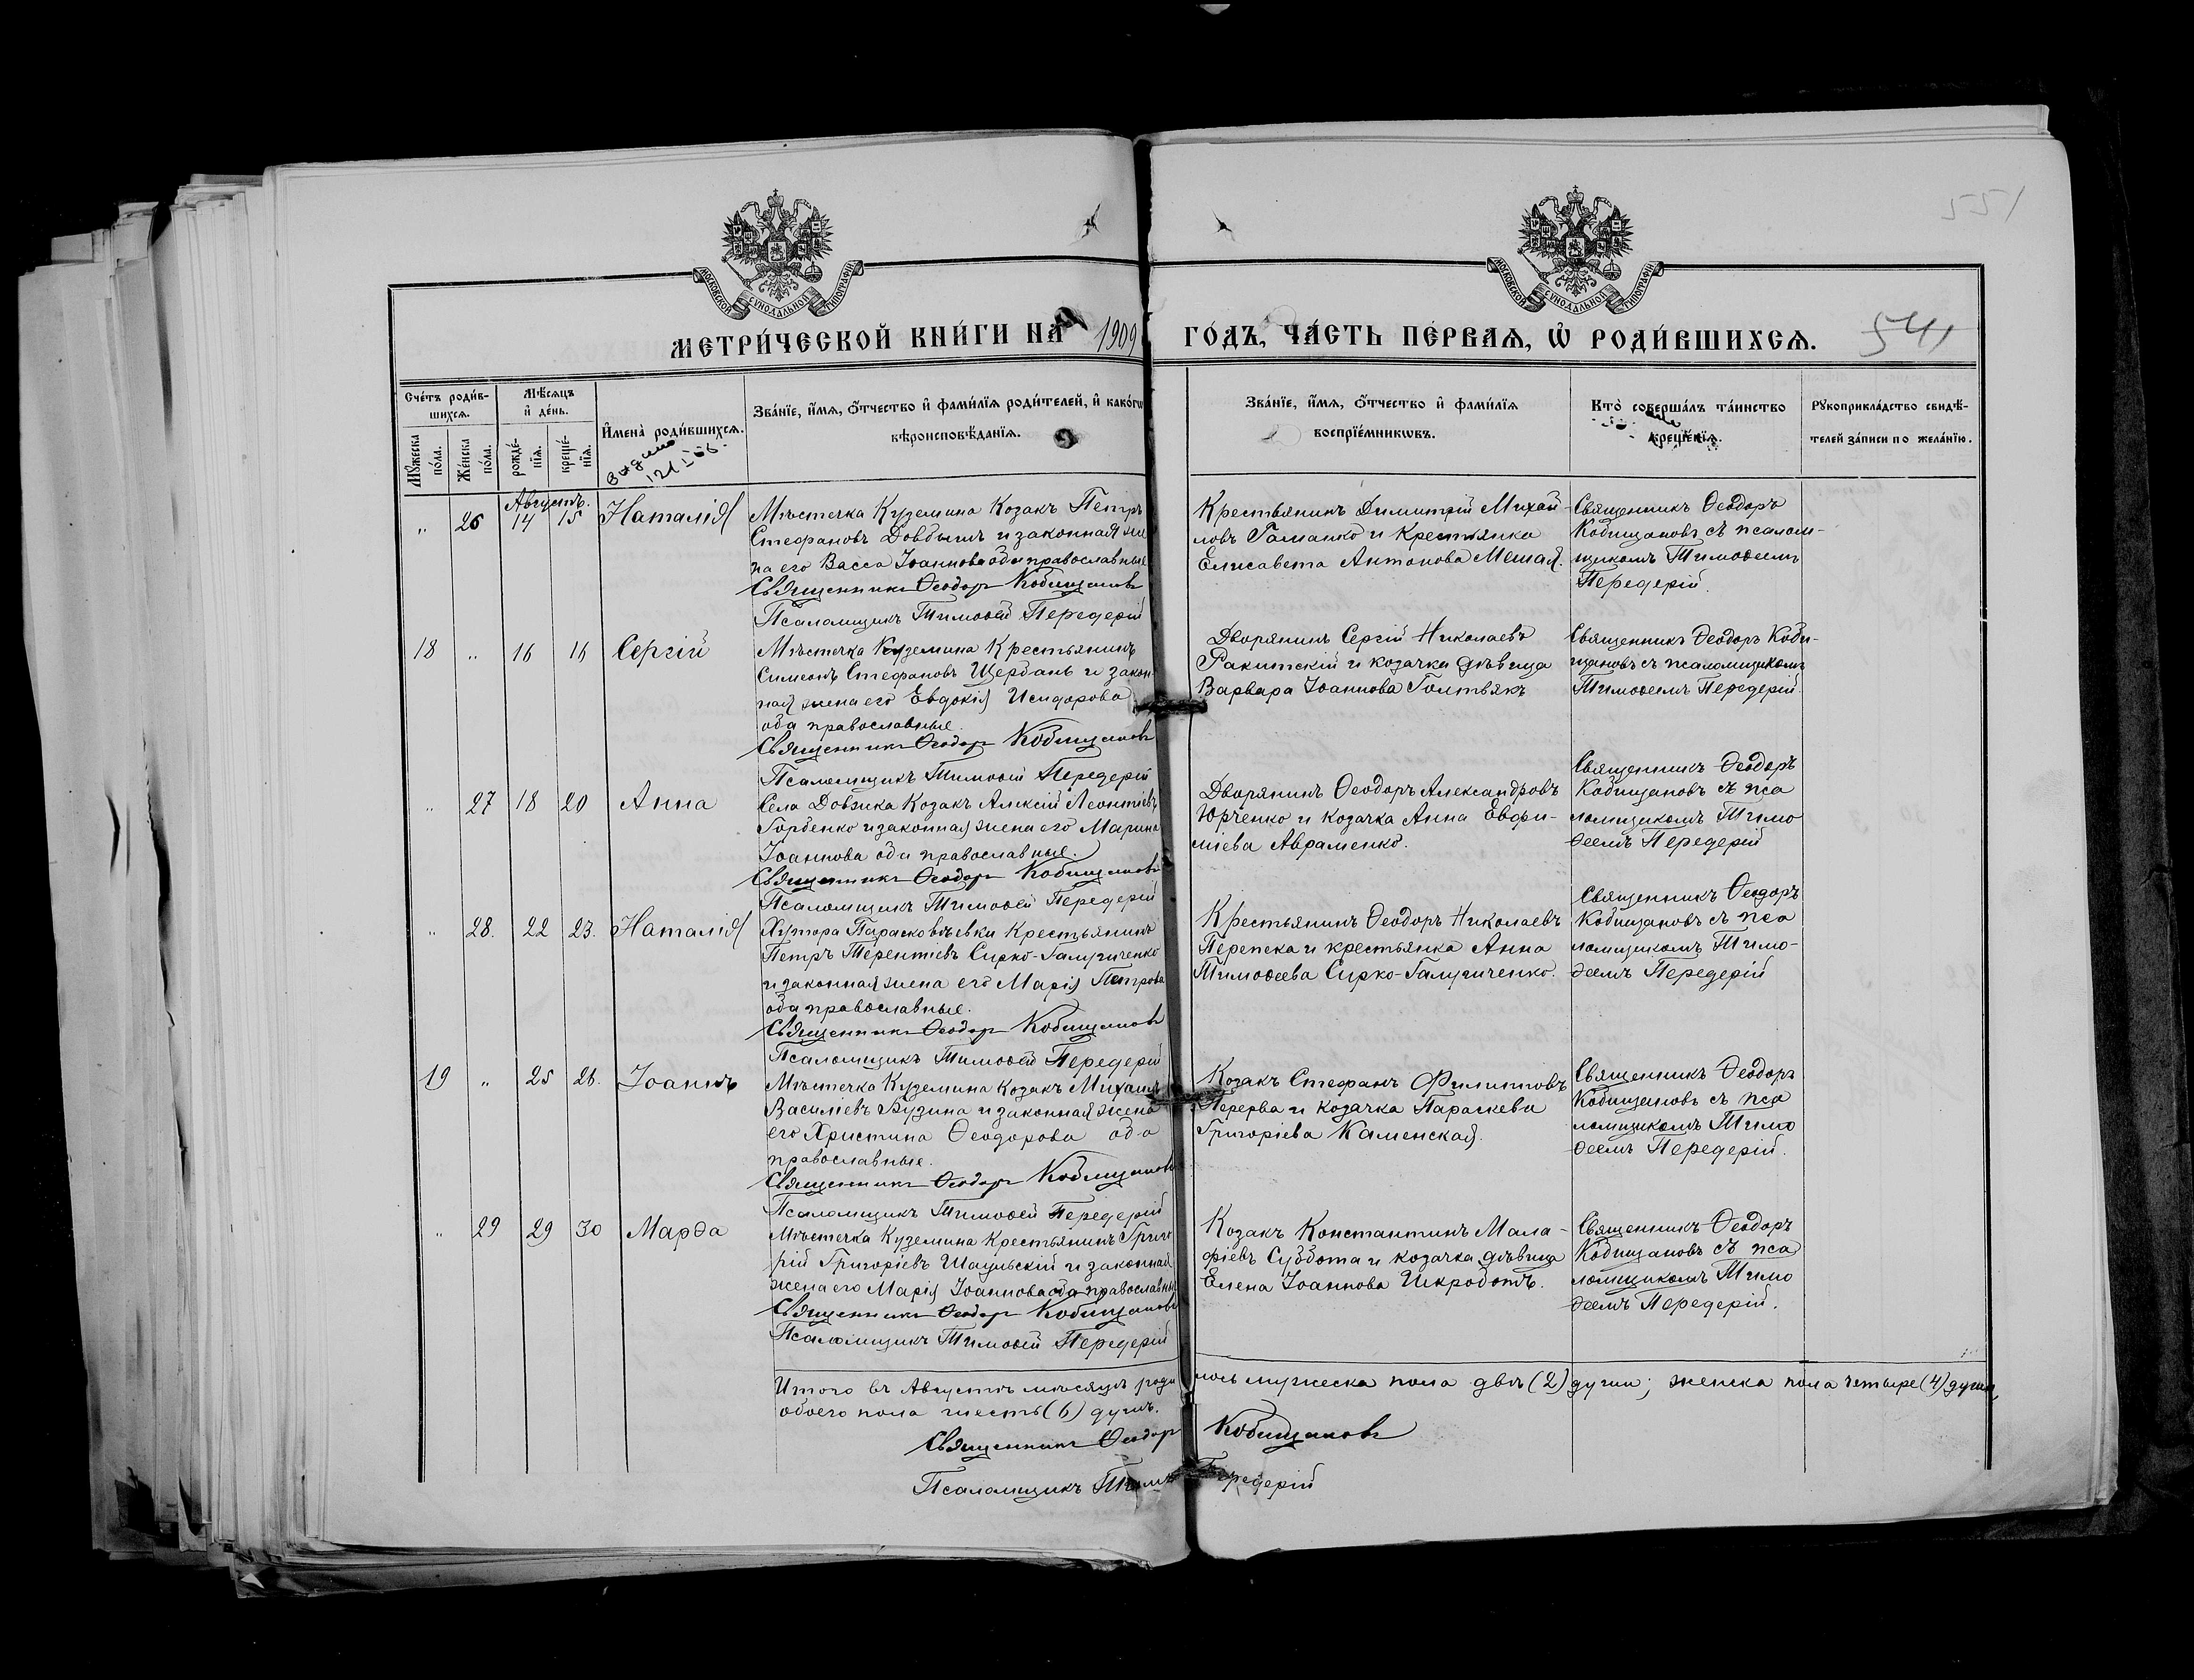 551
МОСКОВСКОЙ СѴНОДАЛЬНОЙ ТИПОГРАФІИ
МОСКОВСКОЙ СѴНОДАЛЬНОЙ ТИПОГРАФІИ
МЕТРИ́ЧЕСКОЙ КНИ́ГИ НА 1909 ГО́ДЪ, ЧА́СТЬ ПЕ́РВАѦ, Ѡ҆ РОДИ́ВШИХСѦ.
541
Сче́тъ роди́в-
шихсѧ.
Мꙋ́жеска по́ла.
Же́нска по́ла.
Мѣ́сѧцъ
и҆ де́нь.
рожде́-
нїѧ.
креще́-
нїѧ.
И҆мена̀ роди́вшихсѧ.
Зва́нїе, и҆́мѧ, ѻ҆́тчество и҆ фами́лїѧ роди́телей, и҆ како́гѡ
вѣроисповѣ́данїѧ.
Зва́нїе, и҆́мѧ, ѻ҆́тчество и҆ фами́лїѧ
воспрїе́мникѡвъ.
Кто̀ соверша́лъ та́инство
креще́нїѧ.
Рꙋкоприкла́дство свидѣ́-
телей за́писи по жела́нїю.
Августъ.
" 26 14 15 Наталія
Мѣстечка Куземина Козакъ Петръ
Стефановъ Довбышъ и законная же
на его Васса Іоаннова оба православные
Священникъ Ѳеодоръ Кобищановъ
Псаломщикъ Тимоѳей Передерій
Крестьянинъ Димитрій Михай-
ловъ Гаманко и Крестьянка
Елисавета Антонова Мешая.
Священникъ Ѳеодоръ
Кобищановъ съ псалом-
щикомъ Тимоѳеемъ
Передерій.
18 " 16 16 Сергій
Мѣстечка Куземина Крестьянинъ
Симеонъ Стефановъ Щербань и закон-
ная жена его Евдокія Исидорова
оба православные.
Священникъ Ѳеодоръ Кобищановъ
Псаломщикъ Тимоѳей Передерій
Дворянинъ Сергій Николаевъ
Ракитскій и козачка дѣвица
Варвара Іоаннова Голтвякъ
Священникъ Ѳеодоръ Коби-
щановъ съ псаломщикомъ
Тимоѳеемъ Передерій.
" 27 18 20 Анна
Села Довжика Козакъ Алексій Леонтіевъ
Горбенко и законная жена его Марина
Іоаннова оба православные.
Священникъ Ѳеодоръ Кобищановъ
Псаломщикъ Тимоѳей Передерій
Дворянинъ Ѳеодоръ Александровъ
Юрченко и козачка Анна Евфи-
міева Авраменко.
Священникъ Ѳеодоръ
Кобищановъ съ пса
ломщикомъ Тимо
ѳеемъ Передерій
" 28. 22 23. Наталія
Хутора Парасковѣевки Крестьянинъ
Петръ Терентіевъ Сирко-Галушченко
и законная жена его Марія Петрова
оба православные.
Священникъ Ѳеодоръ Кобищановъ
Псаломщикъ Тимоѳей Передерій
Крестьянинъ Ѳеодоръ Николаевъ
Перепека и крестьянка Анна
Тимоѳеева Сирко-Галушченко.
Священникъ Ѳеодоръ
Кобищановъ съ пса
ломщикомъ Тимо-
ѳеемъ Передерій
19 " 25 26. Іоаннъ
Мѣстечка Куземина Козакъ Михаилъ
Василіевъ Бузина и законная жена
его Христина Ѳеодорова оба
православные.
Священникъ Ѳеодоръ Кобищановъ
Псаломщикъ Тимоѳей Передерій
Козакъ Стефанъ Филипповъ
Перерва и козачка Параскева
Григоріева Каменская.
Священникъ Ѳеодоръ
Кобищановъ съ пса
ломщикомъ Тимо
ѳеемъ Передерій.
" 29 29 30 Марѳа
Мѣстечка Куземина Крестьянинъ Григо
рій Григоріевъ Шаульскій и законная
жена его Марія Іоаннова оба православные
Священникъ Ѳеодоръ Кобищановъ
Псаломщикъ Тимоѳей Передерій
Козакъ Константинъ Мала-
фіевъ Суббота и козачка дѣвица
Елена Іоаннова Шкроботъ.
Священникъ Ѳеодоръ
Кобищановъ съ пса
ломщикомъ Тимо
ѳеемъ Передерій.
Итого въ Августѣ мѣсяцѣ роди лось мужеска пола двѣ (2) души; женска пола четыре (4) души,
обоего пола шесть (6) душъ.
Священникъ Ѳеодоръ Кобищановъ
Псаломщикъ Тимоѳей Передерій